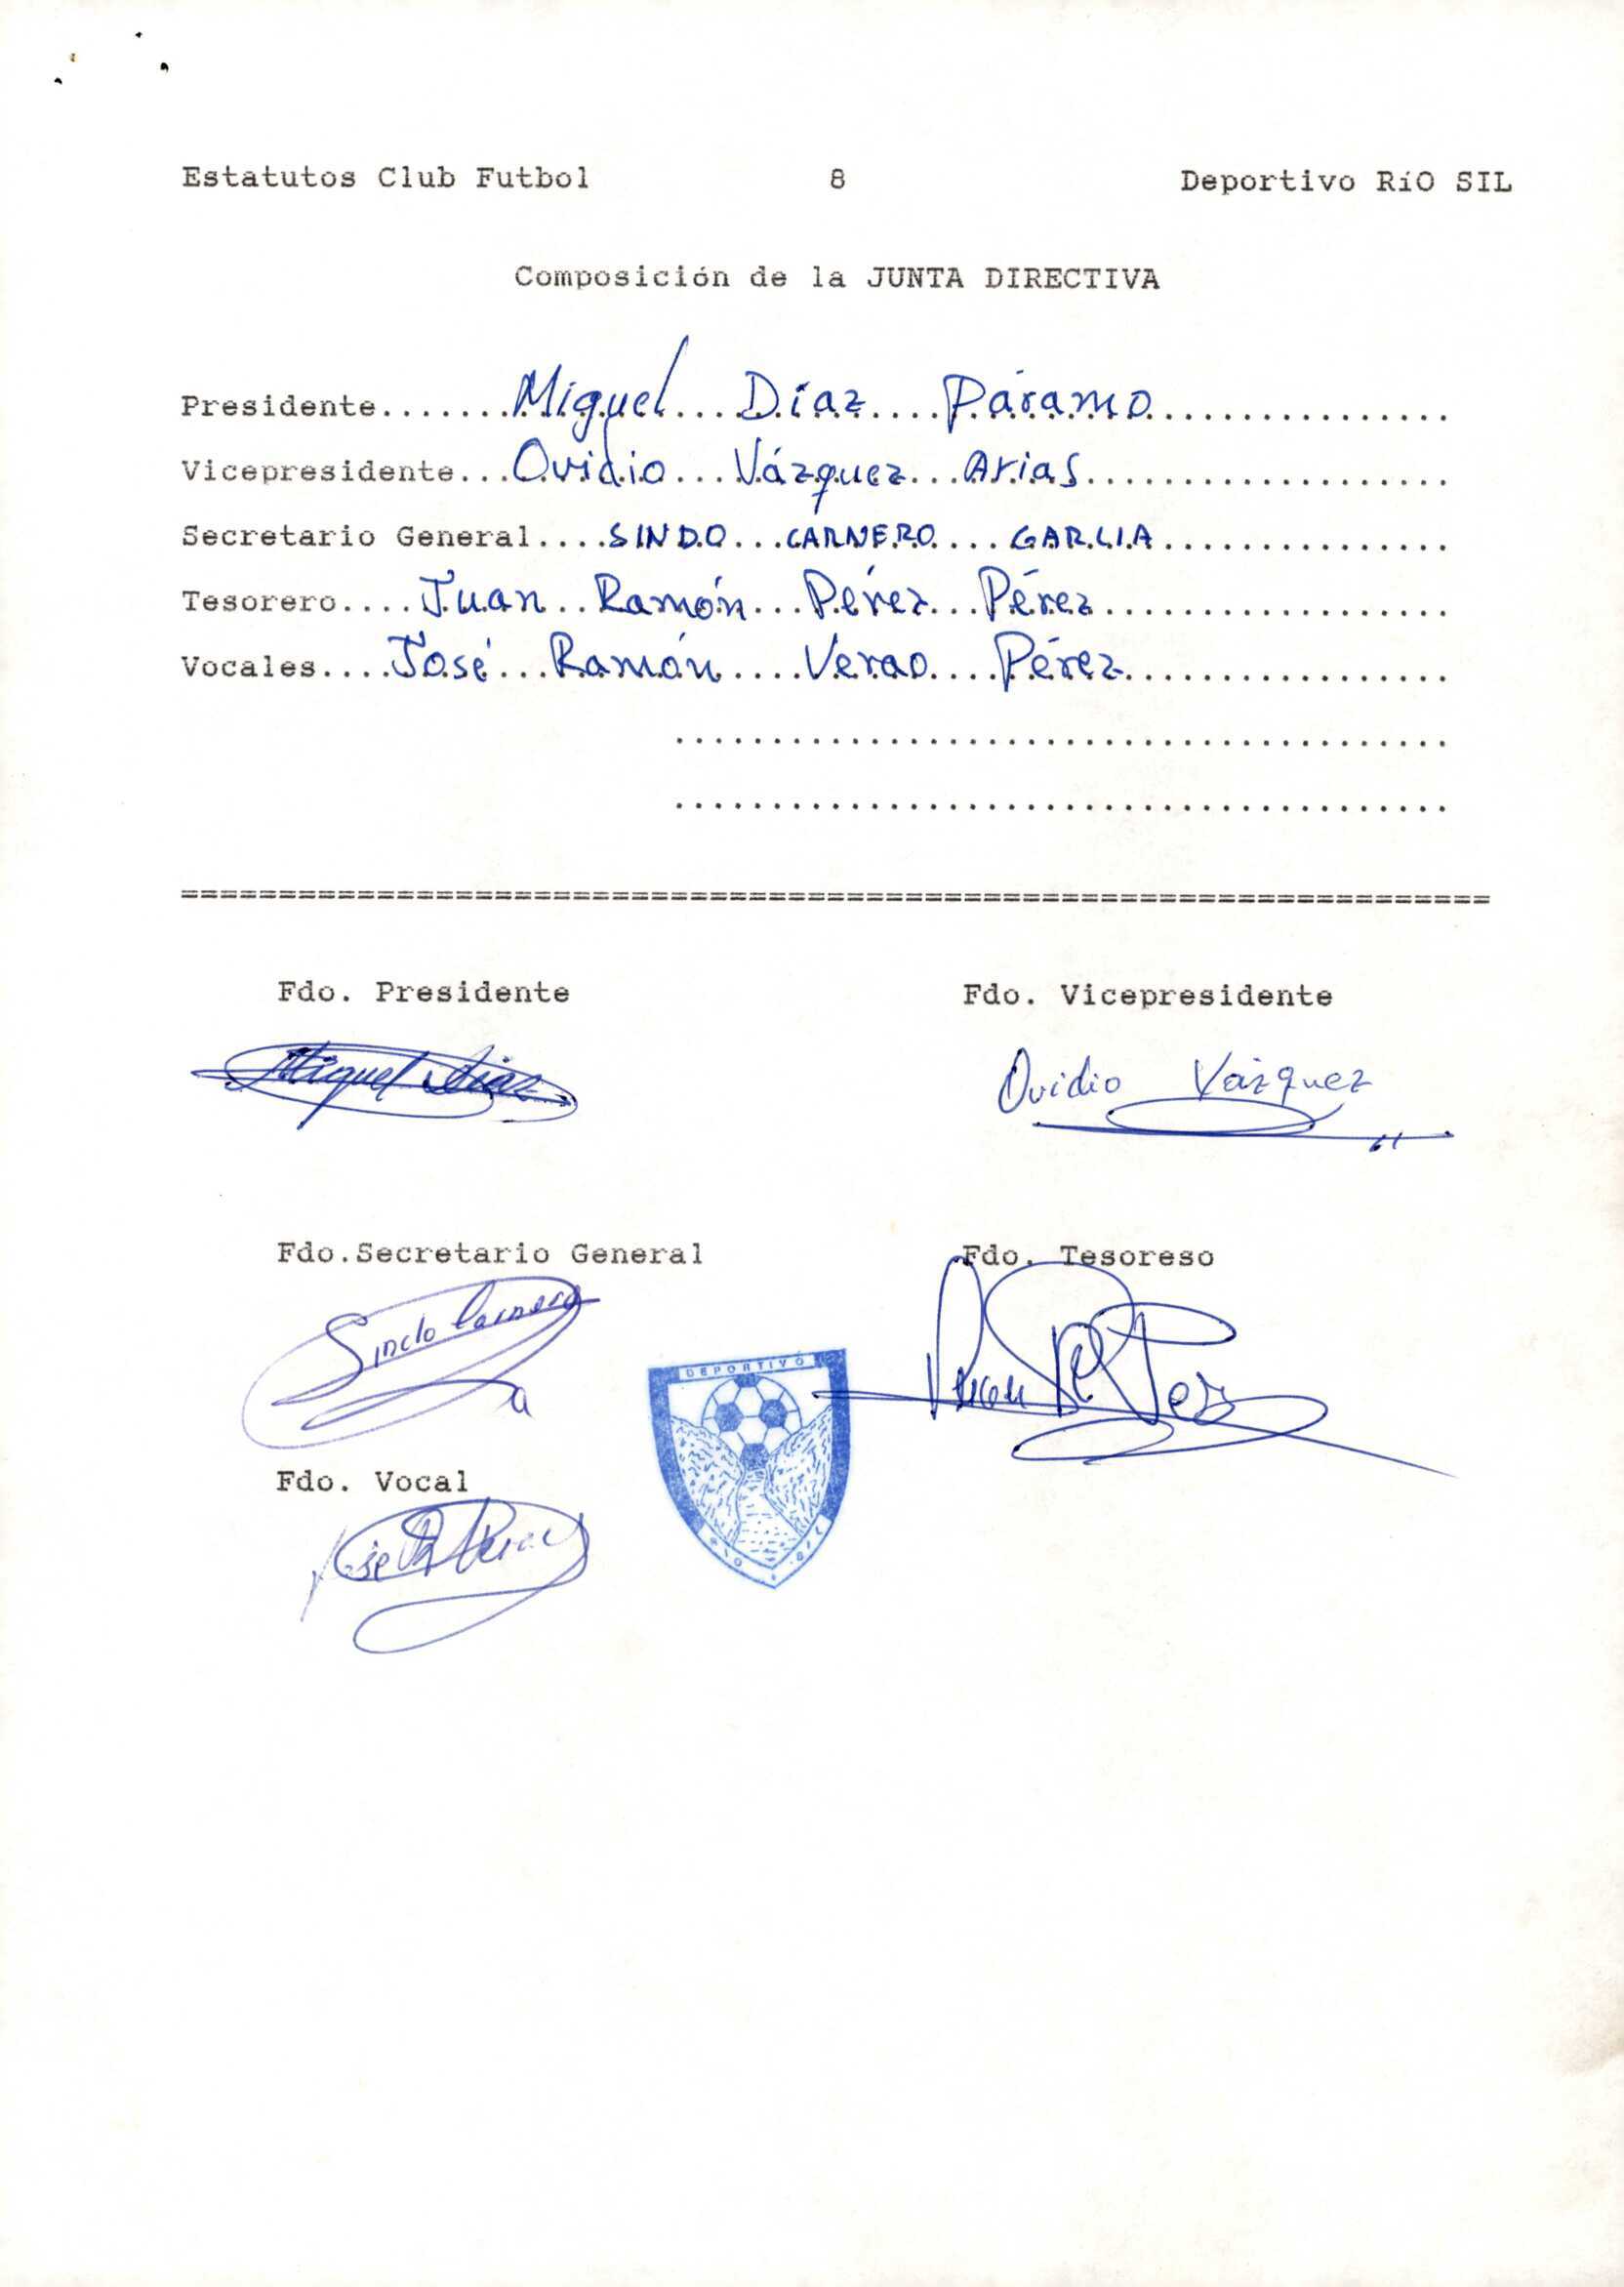 Estatutos Club Futbol 8 Deportivo RíO SIL
Composición de la JUNTA DIRECTIVA
Presidente.......Miguel...Díaz....Páramo................
Vicepresidente...Ovidio...Vázquez...Arias...................
Secretario General....SINDO...CARNERO....GARCIA...............
Tesorero....Juan..Ramón...Pérez...Pérez..................
Vocales....José...Ramón....Verao....Pérez.................
........................................
........................................
===================================================================
Fdo. Presidente Fdo. Vicepresidente
Miguel Díaz Ovidio Vázquez
Fdo.Secretario General Fdo. Tesoreso
Sindo Carnero
DEPORTIVO
Fdo. Vocal
RIO SIL